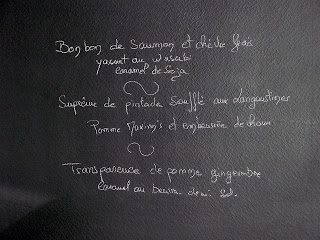 Bonbon de Saumon et chèvre frais
yaourt au wasabi
Caramel de Soza
Suprême de pintade Soufflé aux Langoustines
Pomme Maxim's et embeurrée de choux
Transparence de pomme gingembre
Caramel au beurre demi sel.